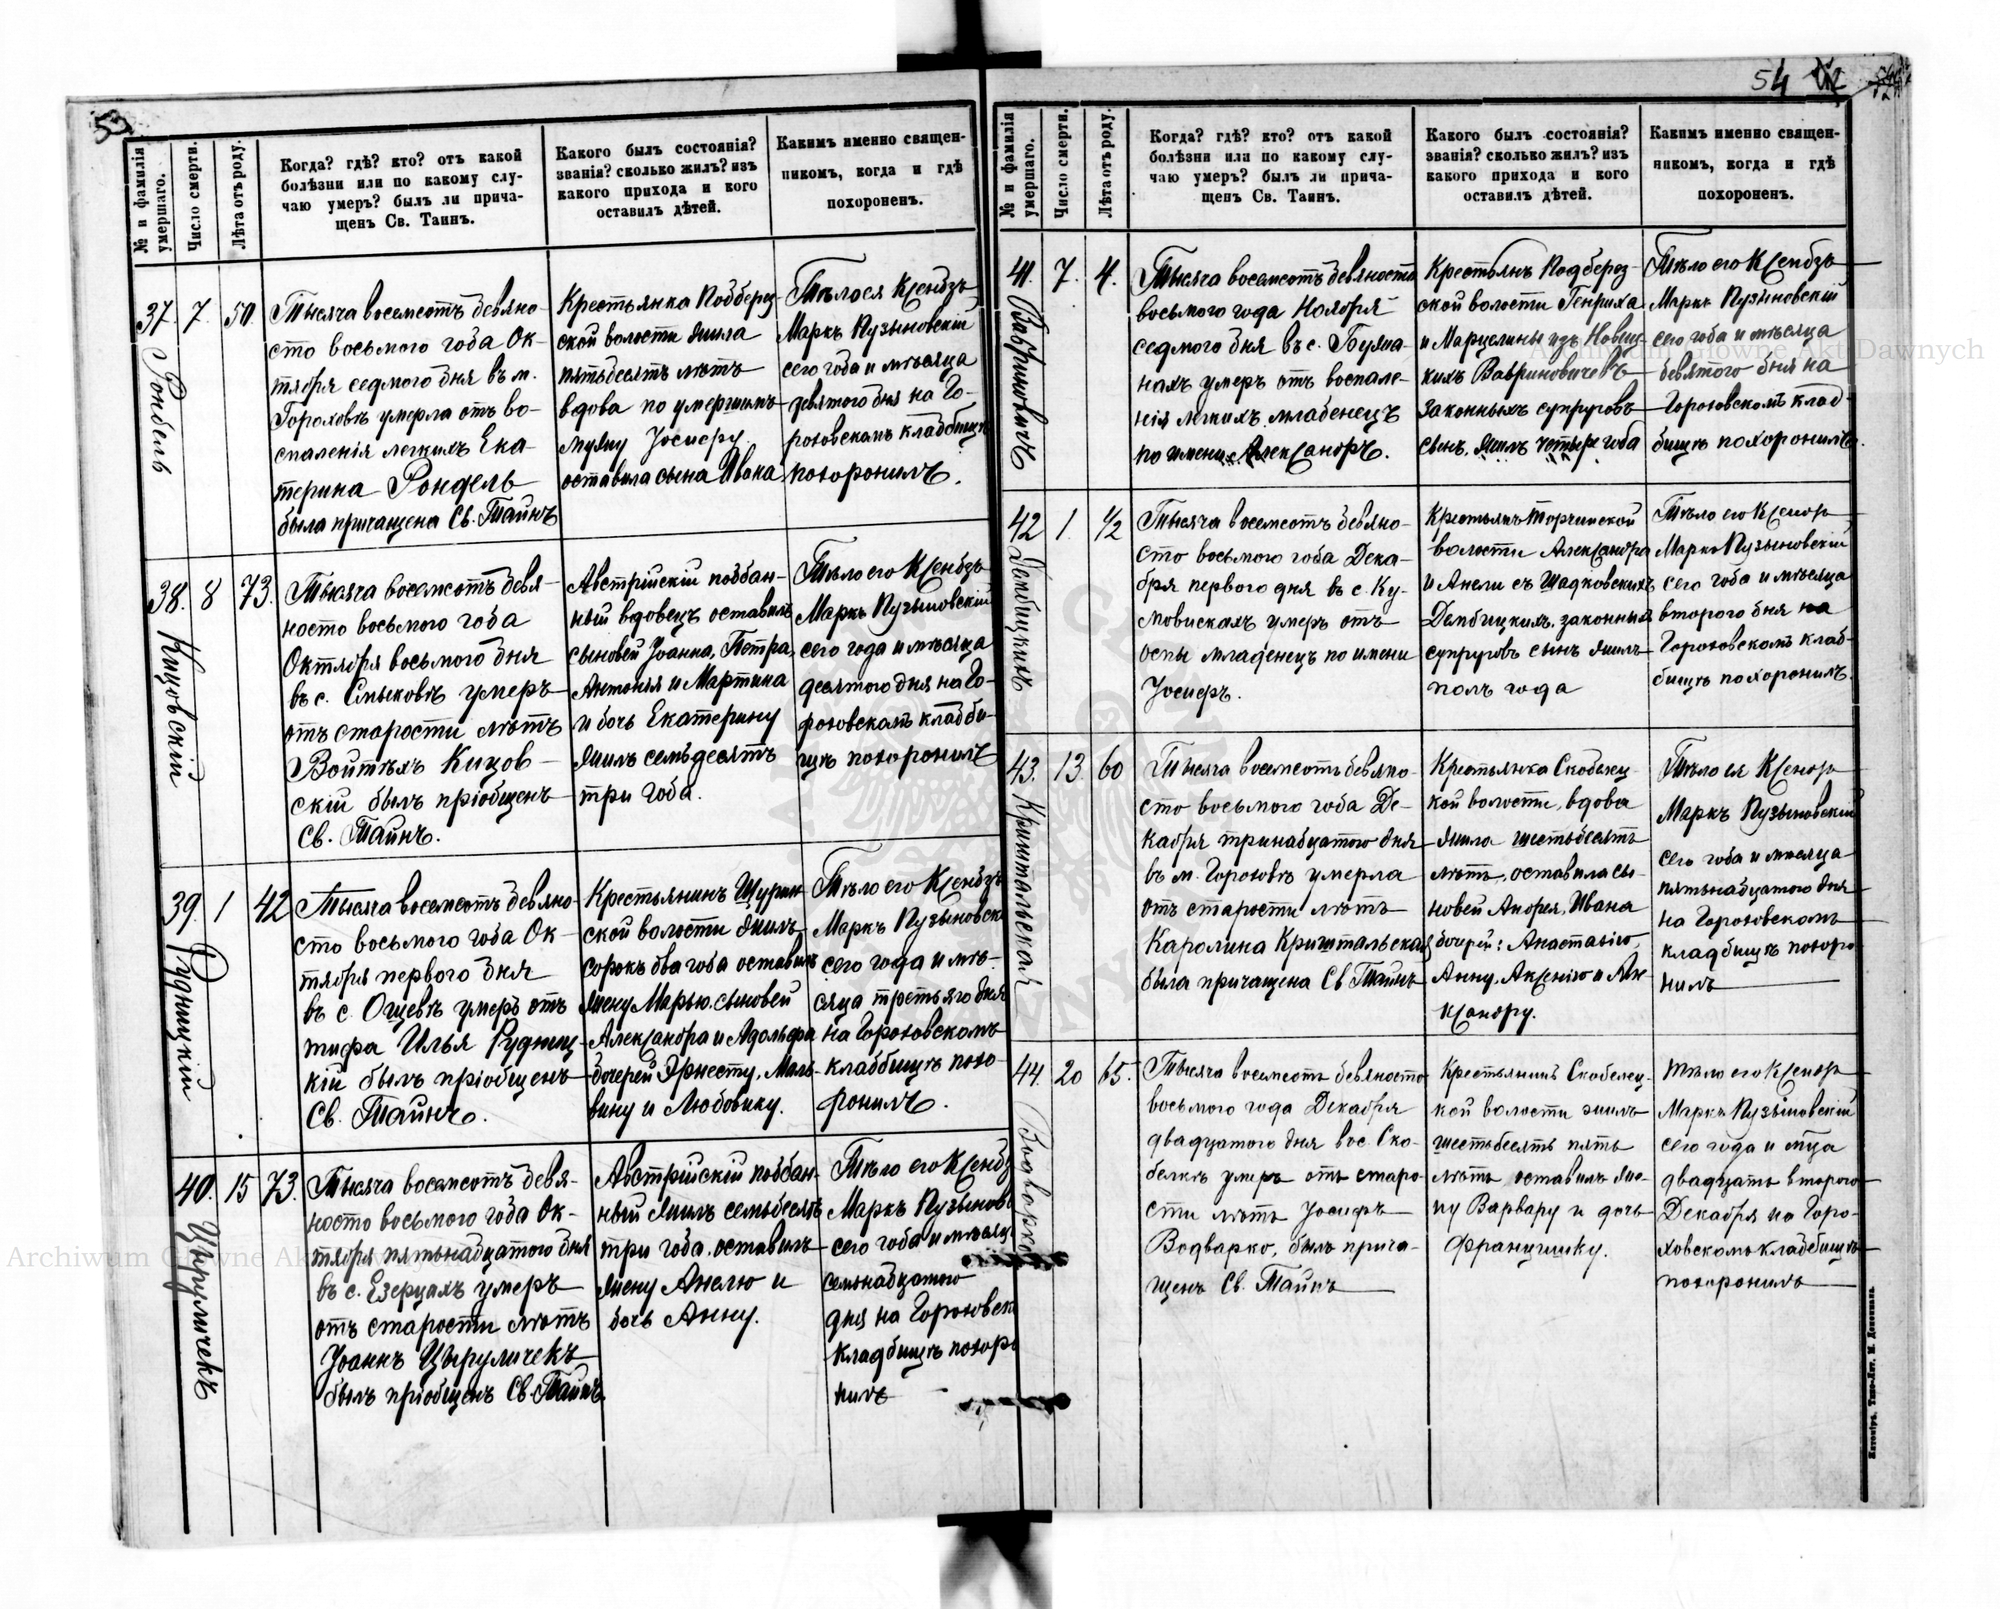 53
№ и фамилія
умершаго.
Число смерти.
Лѣта отъ роду.
Когда? гдѣ? кто? отъ какой
болѣзни или по какому слу-
чаю умеръ? былъ ли прича-
щенъ Св. Таинъ.
Какого былъ состоянія?
званія? сколько жилъ? изъ
какого прихода и кого
оставилъ дѣтей.
Какимъ именно священ-
никомъ, когда и гдѣ
похороненъ.
37. 7. 50.
Рондель
Тысяча восемсотъ девяно-
сто восьмого года Ок-
тября седмого дня въ м.
Гороховѣ умерла отъ во-
спаленія легкихъ Ека-
терина Рондель
была причащена Св. Тайнъ
Крестьянка Подберез-
ской волости жила
пятьдесятъ лѣтъ
вдова по умершимъ
мужу Іосифу
оставила сына Ивана
Тѣло ея Ксендзъ
Маркъ Пузыновскій
сего года и мѣсяца
девятого дня на Го-
роховскомъ кладбищѣ
похоронилъ.
38. 8 73.
Кицовскій
Тысяча восемсотъ девя-
носто восьмого года
Октября восьмого дня
въ с. Смыковѣ умеръ
отъ старости лѣтъ
Войтѣхъ Кицов-
скій былъ пріобщенъ
Св. Тайнъ.
Австрійскій поддан-
ный вдовецъ оставилъ
сыновей Іоанна, Петра,
Антонія и Мартина
и дочь Екатерину
жилъ семьдесятъ
три года.
Тѣло его Ксендзъ
Маркъ Пузыновскій
сего года и мѣсяца
десятого дня на Го-
роховскомъ кладби-
щѣ похоронилъ
39. 1 42
Рудницкій
Тысяча восемсотъ девяно-
сто восьмого года Ок-
тября перваго дня
въ с. Ощевѣ умеръ отъ
тифа Илья Рудниц-
кій былъ пріобщенъ
Св. Тайнъ.
Крестьянинъ Щурин-
ской волости жилъ
сорокъ два года оставилъ
жену Марью, сыновей
Александра и Адольфа
дочерей Эрнесту, Маль-
вину и Любовику.
Тѣло его Ксендзъ
Маркъ Пузыновск
сего года и мѣ-
сяца третьяго дня
на Гороховскомъ
кладбищѣ похо-
ронилъ.
40. 15 73.
Цыруличекъ
Тысяча восемсотъ девя-
носто восьмого года Ок-
тября пятьнадцатого дня
въ с. Езерцахъ умеръ
отъ старости лѣтъ
Іоаннъ Цыруличекъ
былъ пріобщенъ Св. Тайнъ.
Австрійскій поддан-
ный жилъ семьдесятъ
три года, оставилъ
жену Анелю и
дочь Анну.
Тѣло его Ксендз
Маркъ Пузынов
сего года и мѣсяц
семьнадцатого
дня на Гороховск
кладбищѣ похоро
нилъ
54
№ и фамилія
умершаго.
Число смерти.
Лѣта отъ роду.
Когда? гдѣ? кто? отъ какой
болѣзни или по какому слу-
чаю умеръ? былъ ли прича-
щенъ Св. Таинъ.
Какого былъ состоянія?
званія? сколько жилъ? изъ
какого прихода и кого
оставилъ дѣтей.
Какимъ именно священ-
никомъ, когда и гдѣ
похороненъ.
41. 7. 4.
Вавриновичъ
Тысяча восемсотъ девяноста
восьмого года Ноября
седмого дня въ с. Буяна-
нахъ умеръ отъ воспале-
нія легкихъ младенецъ
по имени Александръ.
Крестьянъ Подберез-
ской волости Генриха
и Марцелины изъ Новиц-
кихъ Вавриновичевъ
законныхъ супруговъ
сынъ, жилъ четыре года
Тѣло его Ксендзъ
Маркъ Пузыновскій
сего года и мѣсяца
девятого дня на
Гороховскомъ клад-
бищѣ похоронилъ.
42 1. ½
Дембицкихъ
Тысяча восемсотъ девяно-
сто восьмого года Дека-
бря первого дня въ с. Ку-
мовискахъ умеръ отъ
оспы младенецъ по имени
Іосифъ.
Крестьянъ Торчинской
волости Александра
и Анели съ Шадковскихъ
Дембицкихъ, законныхъ
супруговъ сынъ жилъ
полъ года
Тѣло его Ксендзъ
Маркъ Пузыновскій
сего года и мѣсяца
второго дня на
Гороховскомъ клад-
бищѣ похоронилъ.
43. 13. 60
Криштальская
Тысяча восемсотъ девяно-
сто восьмого года Де-
кабря тринадцатого дня
въ м. Гороховѣ умерла
отъ старости лѣтъ
Каролина Криштальская
была причащена Св Тайнъ
Крестьянка Скобелец-
кой волости, вдова
жила шестьдесятъ
лѣтъ, оставила сы-
новей Андрея, Ивана
дочерей: Анастасію,
Анну, Аксенію и Але-
ксандру.
Тѣло ея Ксендзъ
Маркъ Пузыновскій
сего года и мѣсяца
пятьнадцатого дня
на Гороховскомъ
кладбищѣ похоро-
нилъ
44. 20 65.
Водварко
Тысяча восемсотъ девяносто
восьмого года Декабря
двадцатого дня вос. Ско-
белкѣ умеръ отъ старо-
сти лѣтъ Іосифъ
Водварко, былъ прича-
щенъ Св. Тайнъ
Крестьянинъ Скобелец-
кой волости жилъ
шестьдесятъ пять
лѣтъ оставилъ же-
ну Варвару и дочь
Францишку.
Тѣло его Ксендзъ
Маркъ Пузыновскій
сего года и мѣца
двадцать второго
Декабря на Горо-
ховскомъ кладбищѣ
похоронилъ
Житомiръ. Типо-Лит. М. Дененмана.
Archiwum Główne Akt Dawnych
Archiwum Główne Akt